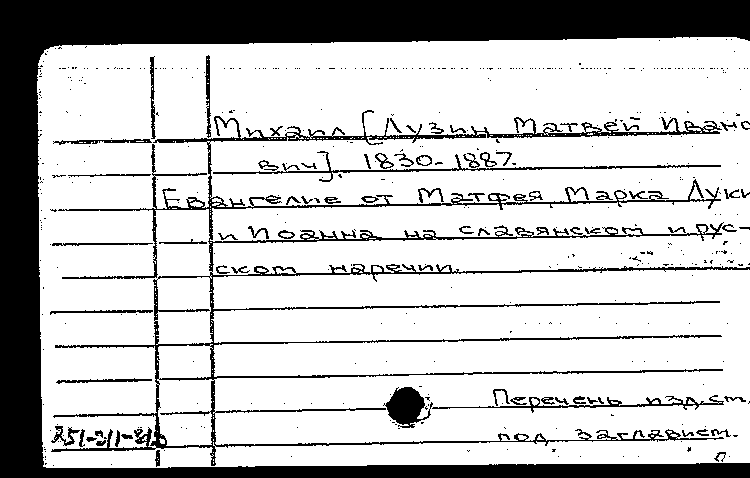 Михаил [Лузин, Матвей Ивано
вич]. 1830-1887.
Евангелие от Матфея, Марка, Луки
и Иоанна на славянском и рус-
ском наречии.
Перечень изд. см.
под заглавием.